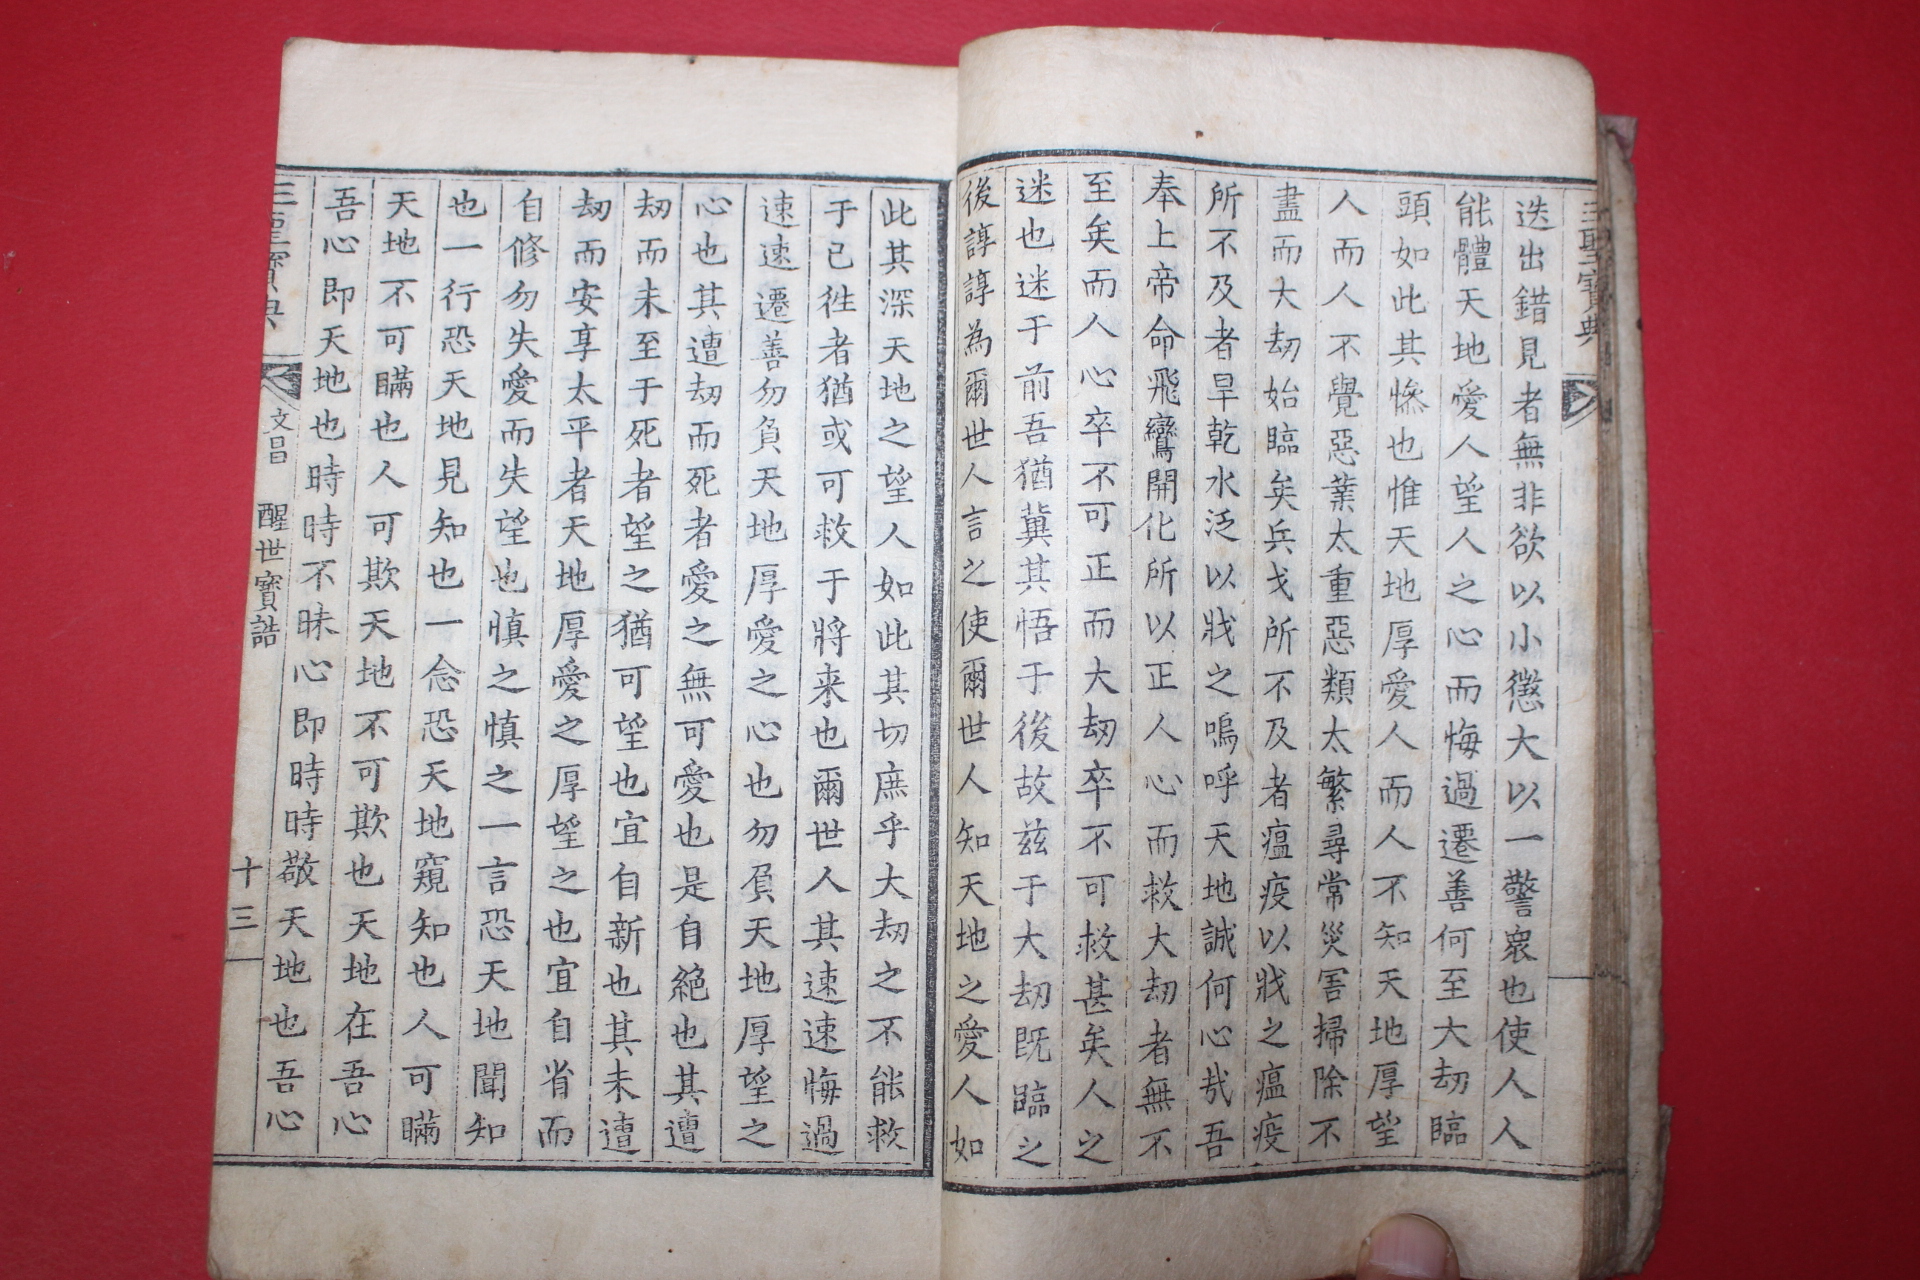 三聖寶典
迭出錯見者無非欲以小懲大以一警衆也使人人
能體天地愛人望人之心而悔過遷善何至大刼臨
頭如此其慘也惟天地厚愛人而人不知天地厚望
人而人不覺惡業太重惡類太繁尋常災害掃除不
盡而大刼始臨矣兵戈所不及者瘟疫以戕之瘟疫
所不及者旱乾水泛以戕之嗚呼天地誠何心哉吾
奉上帝命飛鸞開化所以正人心而救大刼者無不
至矣而人心卒不可正而大刼卒不可救甚矣人之
迷也迷于前吾猶冀其悟于後故兹于大刼既臨之
後諄諄為爾世人言之使爾世人知天地之愛人如
此其深天地之望人如此其切庶乎大刼之不能救
于已徃者猶或可救于將来也爾世人其速速悔過
速速遷善勿負天地厚愛之心也勿負天地厚望之
心也其遭刼而死者愛之無可愛也是自絶也其遭
刼而未至于死者望之猶可望也宜自新也其未遭
刼而安享太平者天地厚愛之厚望之也宜自省而
自修勿失愛而失望也慎之慎之一言恐天地聞知
也一行恐天地見知也一念恐天地窺知也人可瞞
天地不可瞞也人可欺天地不可欺也天地在吾心
吾心即天地也時時不昧心即時時敬天地也吾心
三聖寶典
文昌
醒世寶誥
十三